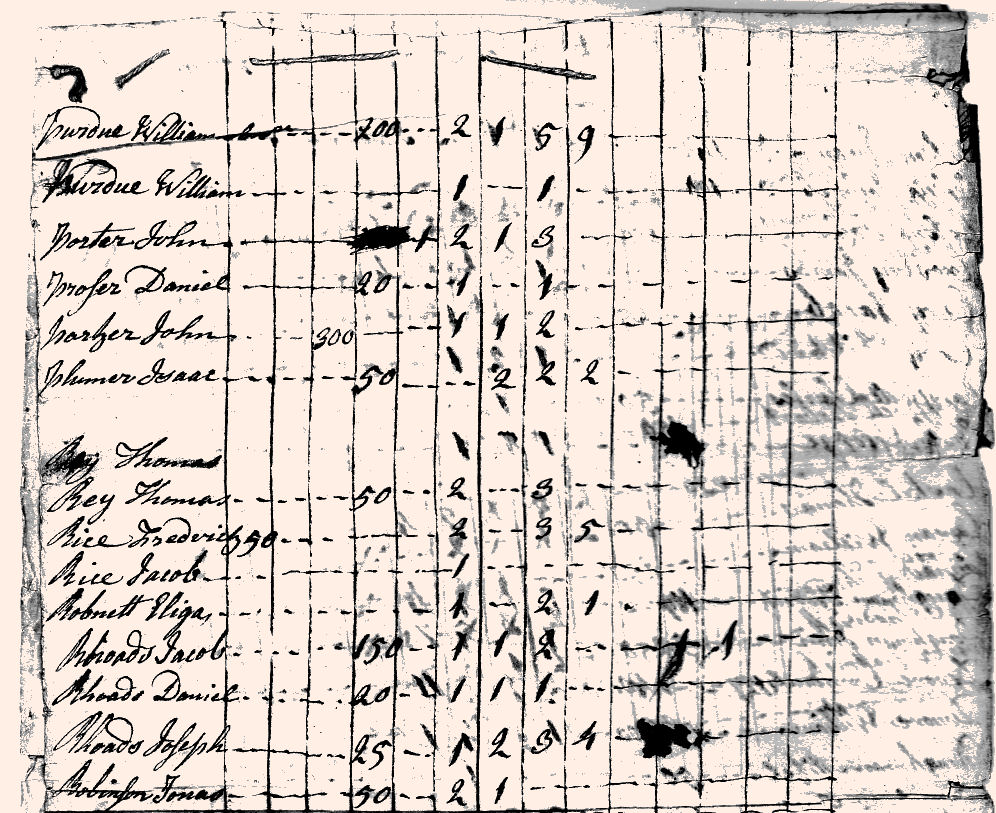 Purdue William 200 2 1 5 9
Purdue William 1 1
Porter John 1 2 1 3
Proser Daniel 20 1 1
Parker John 300 1 1 2
Plumer Isaac 50 2 2 2
Rey Thomas 1 1 1
Rey Thomas 50 2 3
Rice Frederick 350 2 3 5
Rice Jacob 1
Robnett Eliga 1 2 1
Rhoads Jacob 150 1 1 2 1 1
Rhoads Daniel 20 1 1 1
Rhoads Joseph 25 1 2 3 4
Robinson Jonas 50 2 1